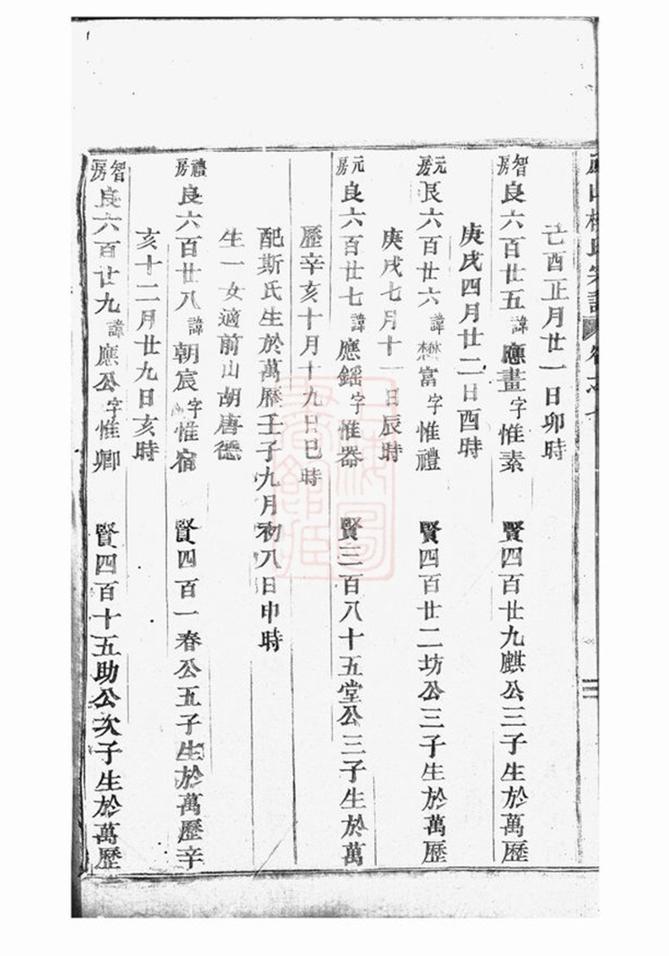 智房良六百廿五諱應畫字惟素 賢四百廿九麒公三子生於萬歷
己酉正月廿一日卯時
元房良六百廿六諱懋富字惟禮 賢四百廿二坊公三子生於萬歷
庚戌四月廿二日酉時
元房良六百廿七諱應鎐字惟器 賢三百八十五堂公三子生於萬
庚戌七月十一日辰時
歷辛亥十月十九日巳時
配斯氏生於萬歷壬子九月初八日申時
生一女適前山胡唐德
禮房良六百廿八諱朝宸字惟宿 賢四百一春公五子生於萬歷辛
亥十二月廿九日亥時
智房良六百廿九諱應公字惟卿 賢四百十五助公次子生於萬歷